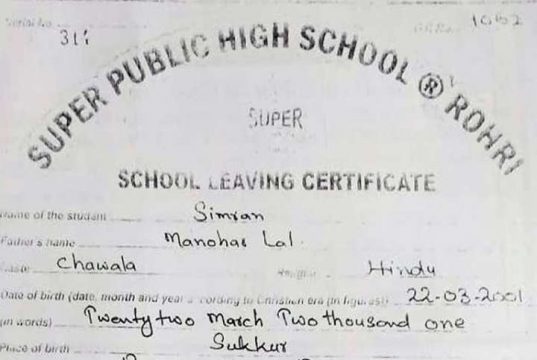 Serial No. 311
G.R.No. 1062
SUPER PUBLIC HIGH SCHOOL ® ROHRI
SUPER
SCHOOL LEAVING CERTIFICATE
Name of the student Simran
Father's name Manohar Lal.
Caste Chawala Religion Hindu
Date of birth (date, month and year according to Christian era (in figures) 22-03-2001
(in words) Twenty two March Two thousand one
Place of birth Sukkur